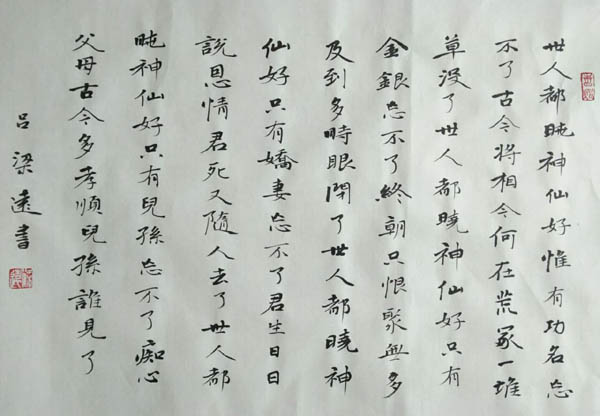 世人都晓神仙好惟有功名忘
不了古今將相今何在荒冢一堆
草没了世人都曉神仙好只有
金銀忘不了終朝只恨聚無多
及到多時眼閉了世人都曉神
仙好只有嬌妻忘不了君生日日
說恩情君死又隨人去了世人都
晓神仙好只有兒孫忘不了痴心
父母古今多孝順兒孫誰見了
呂梁遠書